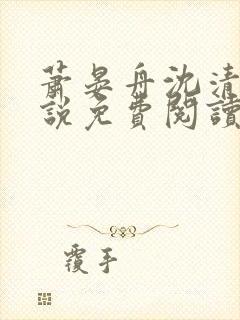 蕭晏舟沈清
說免費閱讀
覆手